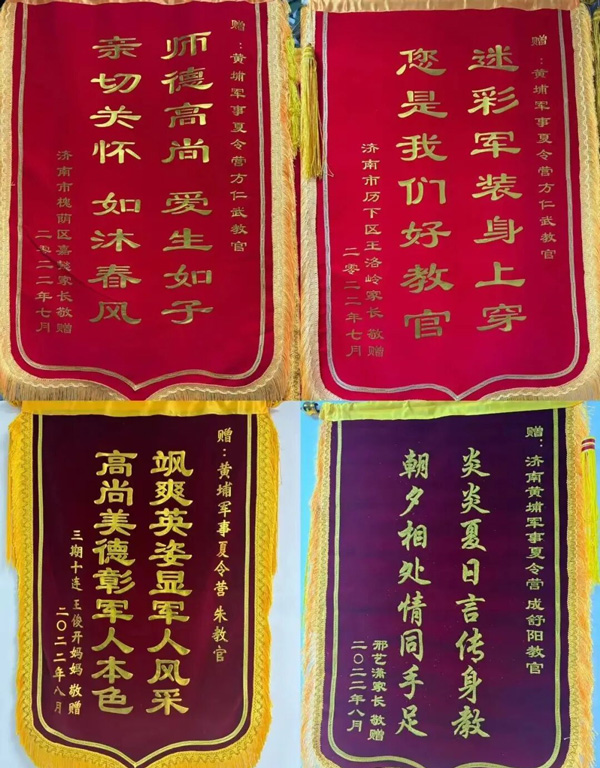 赠：黄埔军事夏令营方仁武教官
师德高尚 爱生如子
亲切关怀 如沐春风
济南市槐荫区嘉懿家长 敬赠
二零二二年七月
赠：黄埔军事夏令营方仁武教官
迷彩军装身上穿
您是我们好教官
济南市历下区王洛岭家长 敬赠
二零二二年七月
赠：黄埔军事夏令营 朱教官
飒爽英姿显军人风采
高尚美德彰军人本色
三期十连 王俊开妈妈 敬赠
二〇二二年八月
赠：济南黄埔军事夏令营 成舒阳教官
炎炎夏日言传身教
朝夕相处情同手足
邢艺潇家长 敬赠
二〇二二年八月